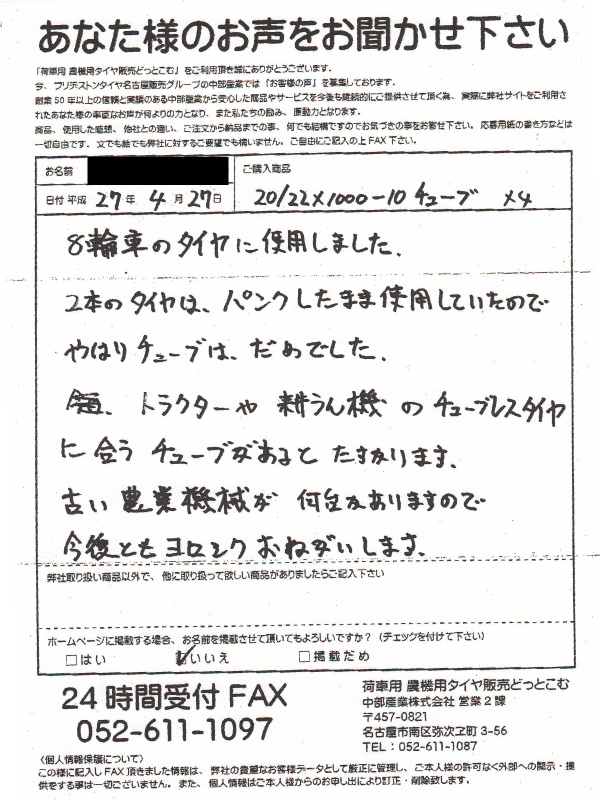 あなた様のお声をお聞かせ下さい
「荷車用 農機用タイヤ販売どっとこむ」をご利用頂き誠にありがとうございます。
今、ブリヂストンタイヤ名古屋販売グループの中部産業では「お客様の声」を募集しております。
創業50年以上の信頼と実績のある中部産業から安心した商品やサービスを今後も継続的にご提供させて頂く為、実際に弊社サイトをご利用さ
れたあなた様の率直なお声が何よりの力となり、また私たちの励み、原動力となります。
商品、使用した感想、他社との違い、ご注文から納品までの事、何でも結構ですのでお気づきの事をお寄せ下さい。応募用紙の書き方などは
一切自由です。文でも絵でも弊社に対するご要望でも構いません。ご自由にご記入の上FAX下さい。
お名前
ご購入商品
日付 平成 27 年 4 月 27 日
20/22×1000-10 チューブ ×4
8輪車のタイヤに使用しました。
2本のタイヤは、パンクしたまま使用していたので
やはりチューブは、だめでした。
トラクターや 耕うん機 のチューブレスタイヤ
に合う チューブがあると たすかります。
古い農業機械が 何台かありますので
今後ともヨロシクおねがいします。
弊社取り扱い商品以外で、他に取り扱って欲しい商品がありましたらご記入下さい
ホームページに掲載する場合、お名前を掲載させて頂いてもよろしいですか？（チェックを付けて下さい）
□はい ☑いいえ □掲載だめ
24時間受付FAX
052-611-1097
荷車用 農機用タイヤ販売どっとこむ
中部産業株式会社 営業2課
〒457-0821
名古屋市南区弥次ヱ町3-56
TEL：052-611-1087
〈個人情報保護について〉
この様に記入しFAX頂きました情報は、弊社の貴重なお客様データとして厳正に管理し、ご本人様の許可なく外部への開示・提
供をする事は一切ございません。また、個人情報はご本人様からのお申し出により訂正・削除致します。